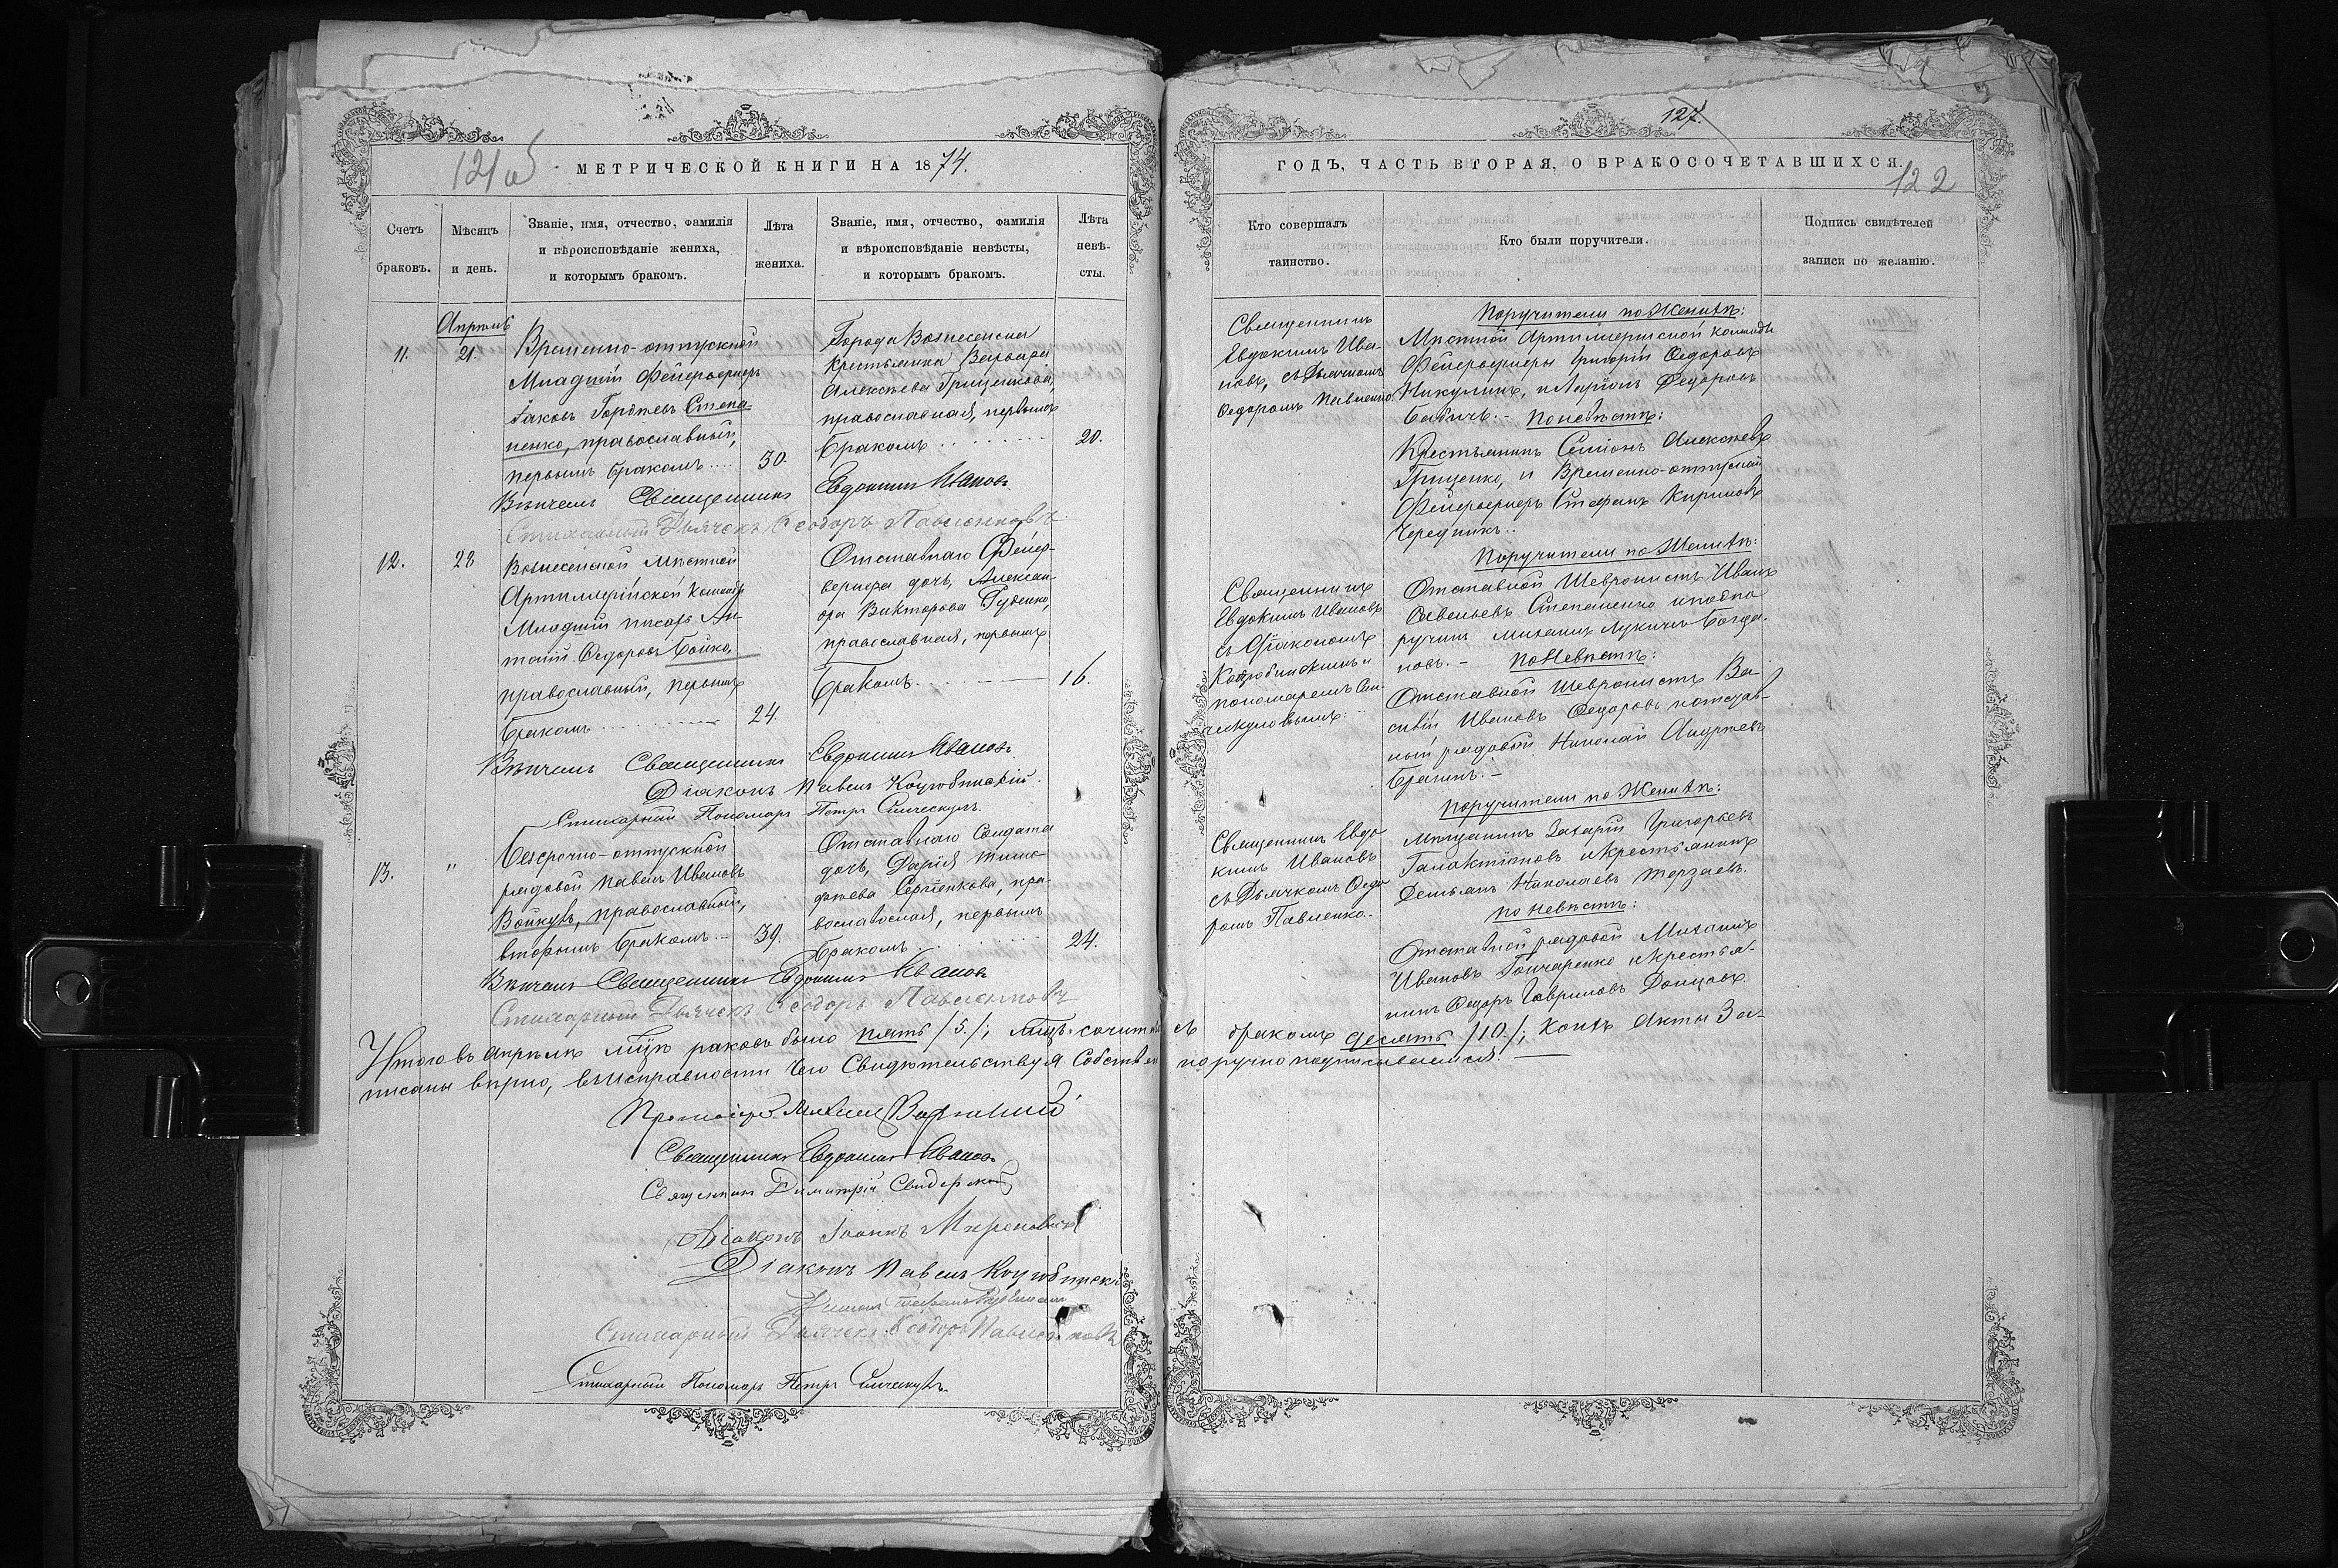 121 об
МЕТРИЧЕСКОЙ КНИГИ НА 1874.
Счетъ браковъ.
Мѣсяцъ и день.
Званіе, имя, отчество, фамилія
и вѣроисповѣданіе жениха,
и которымъ бракомъ.
Лѣта жениха.
Званіе, имя, отчество, фамилія
и вѣроисповѣданіе невѣсты,
и которымъ бракомъ.
Лѣта невѣ-
сты.
Апрѣль
11.
21.
Временно-отпускной
Младшій Фейерверкеръ
Іаковъ Гордѣевъ Степа-
ненко, православный,
первымъ бракомъ
30.
Города Вознесенска
Крестьянка Варвара
Алексѣева Грищенкова,
православная, первымъ
бракомъ
20.
Вѣнчалъ Священникъ Евдокимъ Ивановъ
Стихарный Дьячекъ Ѳеодоръ Павленковъ
12.
28
Вознесенской Мѣстной
Артиллерійской Команды
Младшій писарь Ан-
тоній Ѳедоровъ Бойко,
православный, первымъ
бракомъ
24.
Отставнаго Фейер-
веркера дочь, Алексан-
дра Викторова Руденко,
православная, первымъ
бракомъ
16.
Вѣнчалъ Священникъ Евдокимъ Ивановъ
Діаконъ Павелъ Коцюбинскій.
Стихарный Пономарь Петръ
13.
"
Безсрочно-отпускной
рядовой Павелъ Ивановъ
Войкувъ, православный,
вторымъ бракомъ.
39.
Отставнаго Солдата
дочь, Дарія Тимо-
фѣева Сергіенкова, пра-
вославная, первымъ
бракомъ
24.
Вѣнчалъ Священникъ Евдокимъ Ивановъ
Стихарный Дьячекъ Ѳеодоръ Павленковъ
Итого въ Апрѣлѣ браковъ было пять /5./; лицъ
писаны вѣрно, въ исправности чего Свидѣтельствуя Собствен
Михаилъ
Священникъ Евдокимъ Ивановъ
Священникъ Димитрій Свидерскій
Діаконъ Іоаннъ Мироновичъ
Діаконъ Павелъ Коцюбинскій
Стихарный Дьячекъ Ѳеодоръ Павленковъ
Стихарный Пономарь Петръ
127.
ГОДЪ, ЧАСТЬ ВТОРАЯ, О БРАКОСОЧЕТАВШИХСЯ.
122
Кто совершалъ
таинство.
Кто были поручители.
Подпись свидѣтелей
записи по желанію.
Священникъ
Евдокимъ Ива-
новъ, съ Дьячкомъ
Ѳедоромъ Павленко
Поручители по Женихѣ:
Мѣстной Артиллерійской команды
Фейерверкеры Григорій Ѳедоровъ
Никулинъ, и Ларіонъ Ѳедоровъ
Бабичъ. - По невѣстѣ:
Крестьянинъ Семіонъ Алексѣевъ
Грищенко, и Временно-отпускной
Фейерверкеръ Стефанъ Кириловъ
Чередникъ.
Священникъ
Евдокимъ Ивановъ
съ Діакономъ
Коцюбинскимъ и
пономаремъ
Поручители по Женихѣ:
Отставной Шевронистъ Иванъ
Савельевъ Степаненко и подпо
ручикъ Михаилъ Лукичъ Богда-
новъ. - По Невѣстѣ:
Отставной Шевронистъ Ва-
силій Ивановъ Ѳедоровъ и отстав-
ный рядовой Николай Андреевъ
Брагинъ. -
Священникъ Евдо
кимъ Ивановъ
съ Дьячкомъ Ѳедо
ромъ Павленко.
Поручители по Женихѣ:
Мѣщанинъ Захарій Григорьевъ
Галактіоновъ и крестьянинъ
Демьянъ Николаевъ Терзаевъ.
По невѣстѣ:
Отставной рядовой Михаилъ
Ивановъ Гончаренко и крестья-
нинъ Ѳедоръ Гавриловъ Донцовъ
бракомъ десять /10./; коихъ Акты За-
поручно подписываемся. —